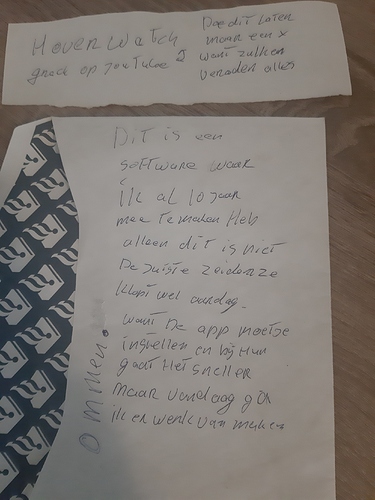 Hoverwatch
goed op youtube
Doe dit Laten
maar een x
want zullen
veraden alles
Dit is een
software waar
ik al 10 jaar
mee te maken Heb
alleen dit is niet
De juiste zeiden ze
klopt wel aardag
want De app moet je
instellen en bij Hun
gaat Het sneller
maar vandaag ga
ik er werk van maken